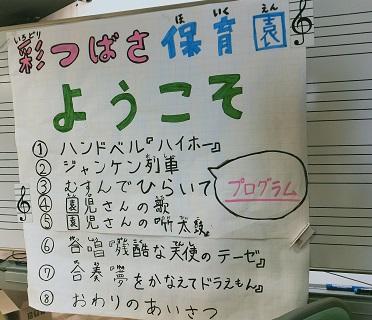 いろどり ほいくえん
彩つばさ保育園
ようこそ
① ハンドベル『ハイホー』
② ジャンケン列車
③ むすんでひらいて
④ 園児さんの歌
⑤ 園児さんの太鼓
⑥ 『残酷な天使のテーゼ』
⑦ 合奏『夢をかなえてドラえもん』
⑧ おわりのあいさつ
プログラム